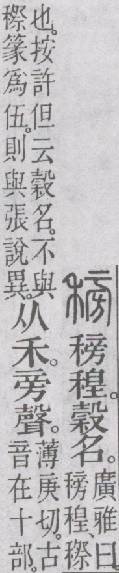 䅭程。穀名。廣雅曰
䅭程、穄
也。按許但云穀名。不與
穄篆爲伍。則與張說異。
从禾。旁聲。薄庚切。古
音在十部。